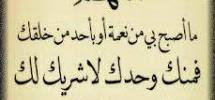 ما أصبح بي من نعمة أو بأحد من خلقك
فمنك وحدك لا شريك لك